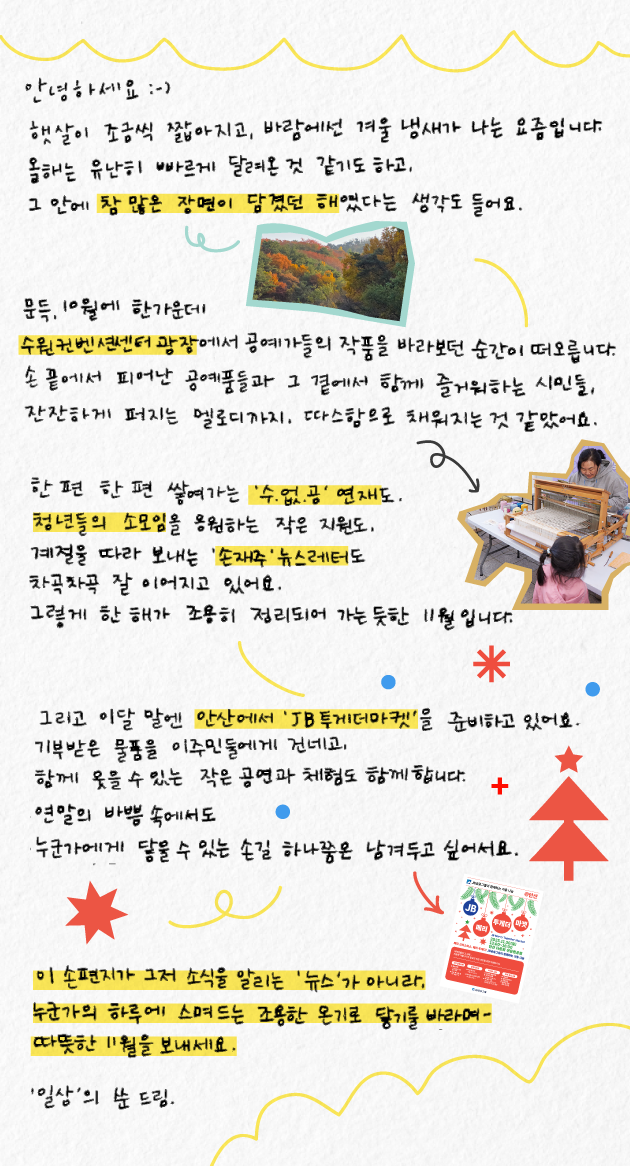 안녕하세요 :-)
햇살이 조금씩 짧아지고, 바람에선 겨울 냄새가 나는 요즘입니다.
올해는 유난히 빠르게 달려온 것 같기도 하고,
그 안에 참 많은 장면이 담겼던 해였다는 생각도 들어요.
문득, 10월에 한가운데
수원컨벤션센터 광장에서 공예가들의 작품을 바라보던 순간이 떠오릅니다.
손 끝에서 피어난 공예품들과 그 곁에서 함께 즐거워하는 시민들,
잔잔하게 퍼지는 멜로디까지. 따스함으로 채워지는 것 같았어요.
한 편 한 편 쌓여가는 '수.없.공' 연재도.
청년들의 소모임을 응원하는 작은 지원도,
계절을 따라 보내는 '손재주' 뉴스레터도
차곡차곡 잘 이어지고 있어요.
그렇게 한 해가 조용히 정리되어 가는 듯한 11월 입니다.
그리고 이달 말엔 안산에서 'JB투게더마켓'을 준비하고 있어요.
기부받은 물품을 이주민들에게 건네고,
함께 웃을 수 있는 작은 공연과 체험도 함께 합니다.
연말의 바쁨 속에서도
누군가에게 닿을 수 있는 손길 하나쯤은 남겨두고 싶어서요.
JB
메리
투게더
마켓
이 손편지가 그저 소식을 알리는 '뉴스'가 아니라,
누군가의 하루에 스며드는 조용한 온기로 닿기를 바라며-
따뜻한 11월을 보내세요.
'일상'의 쑨 드림.